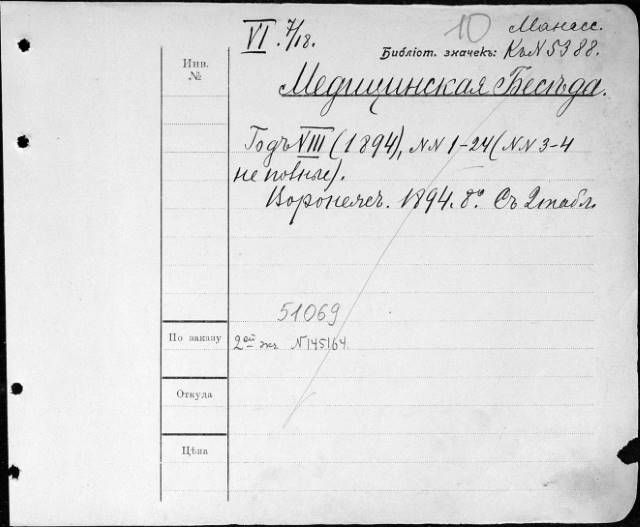 VI. 7/18.
10
Манасс.
Библіот. значекъ: КъN5388.
Инв. №
Медицинская Бесѣда.
Годъ VIII (1894), NN 1-24 (NN 3-4
не полные).
Воронежъ. 1894. 8º. Съ 2 табл.
51069
По заказу
2ой экз N145164.
Откуда
Цѣна